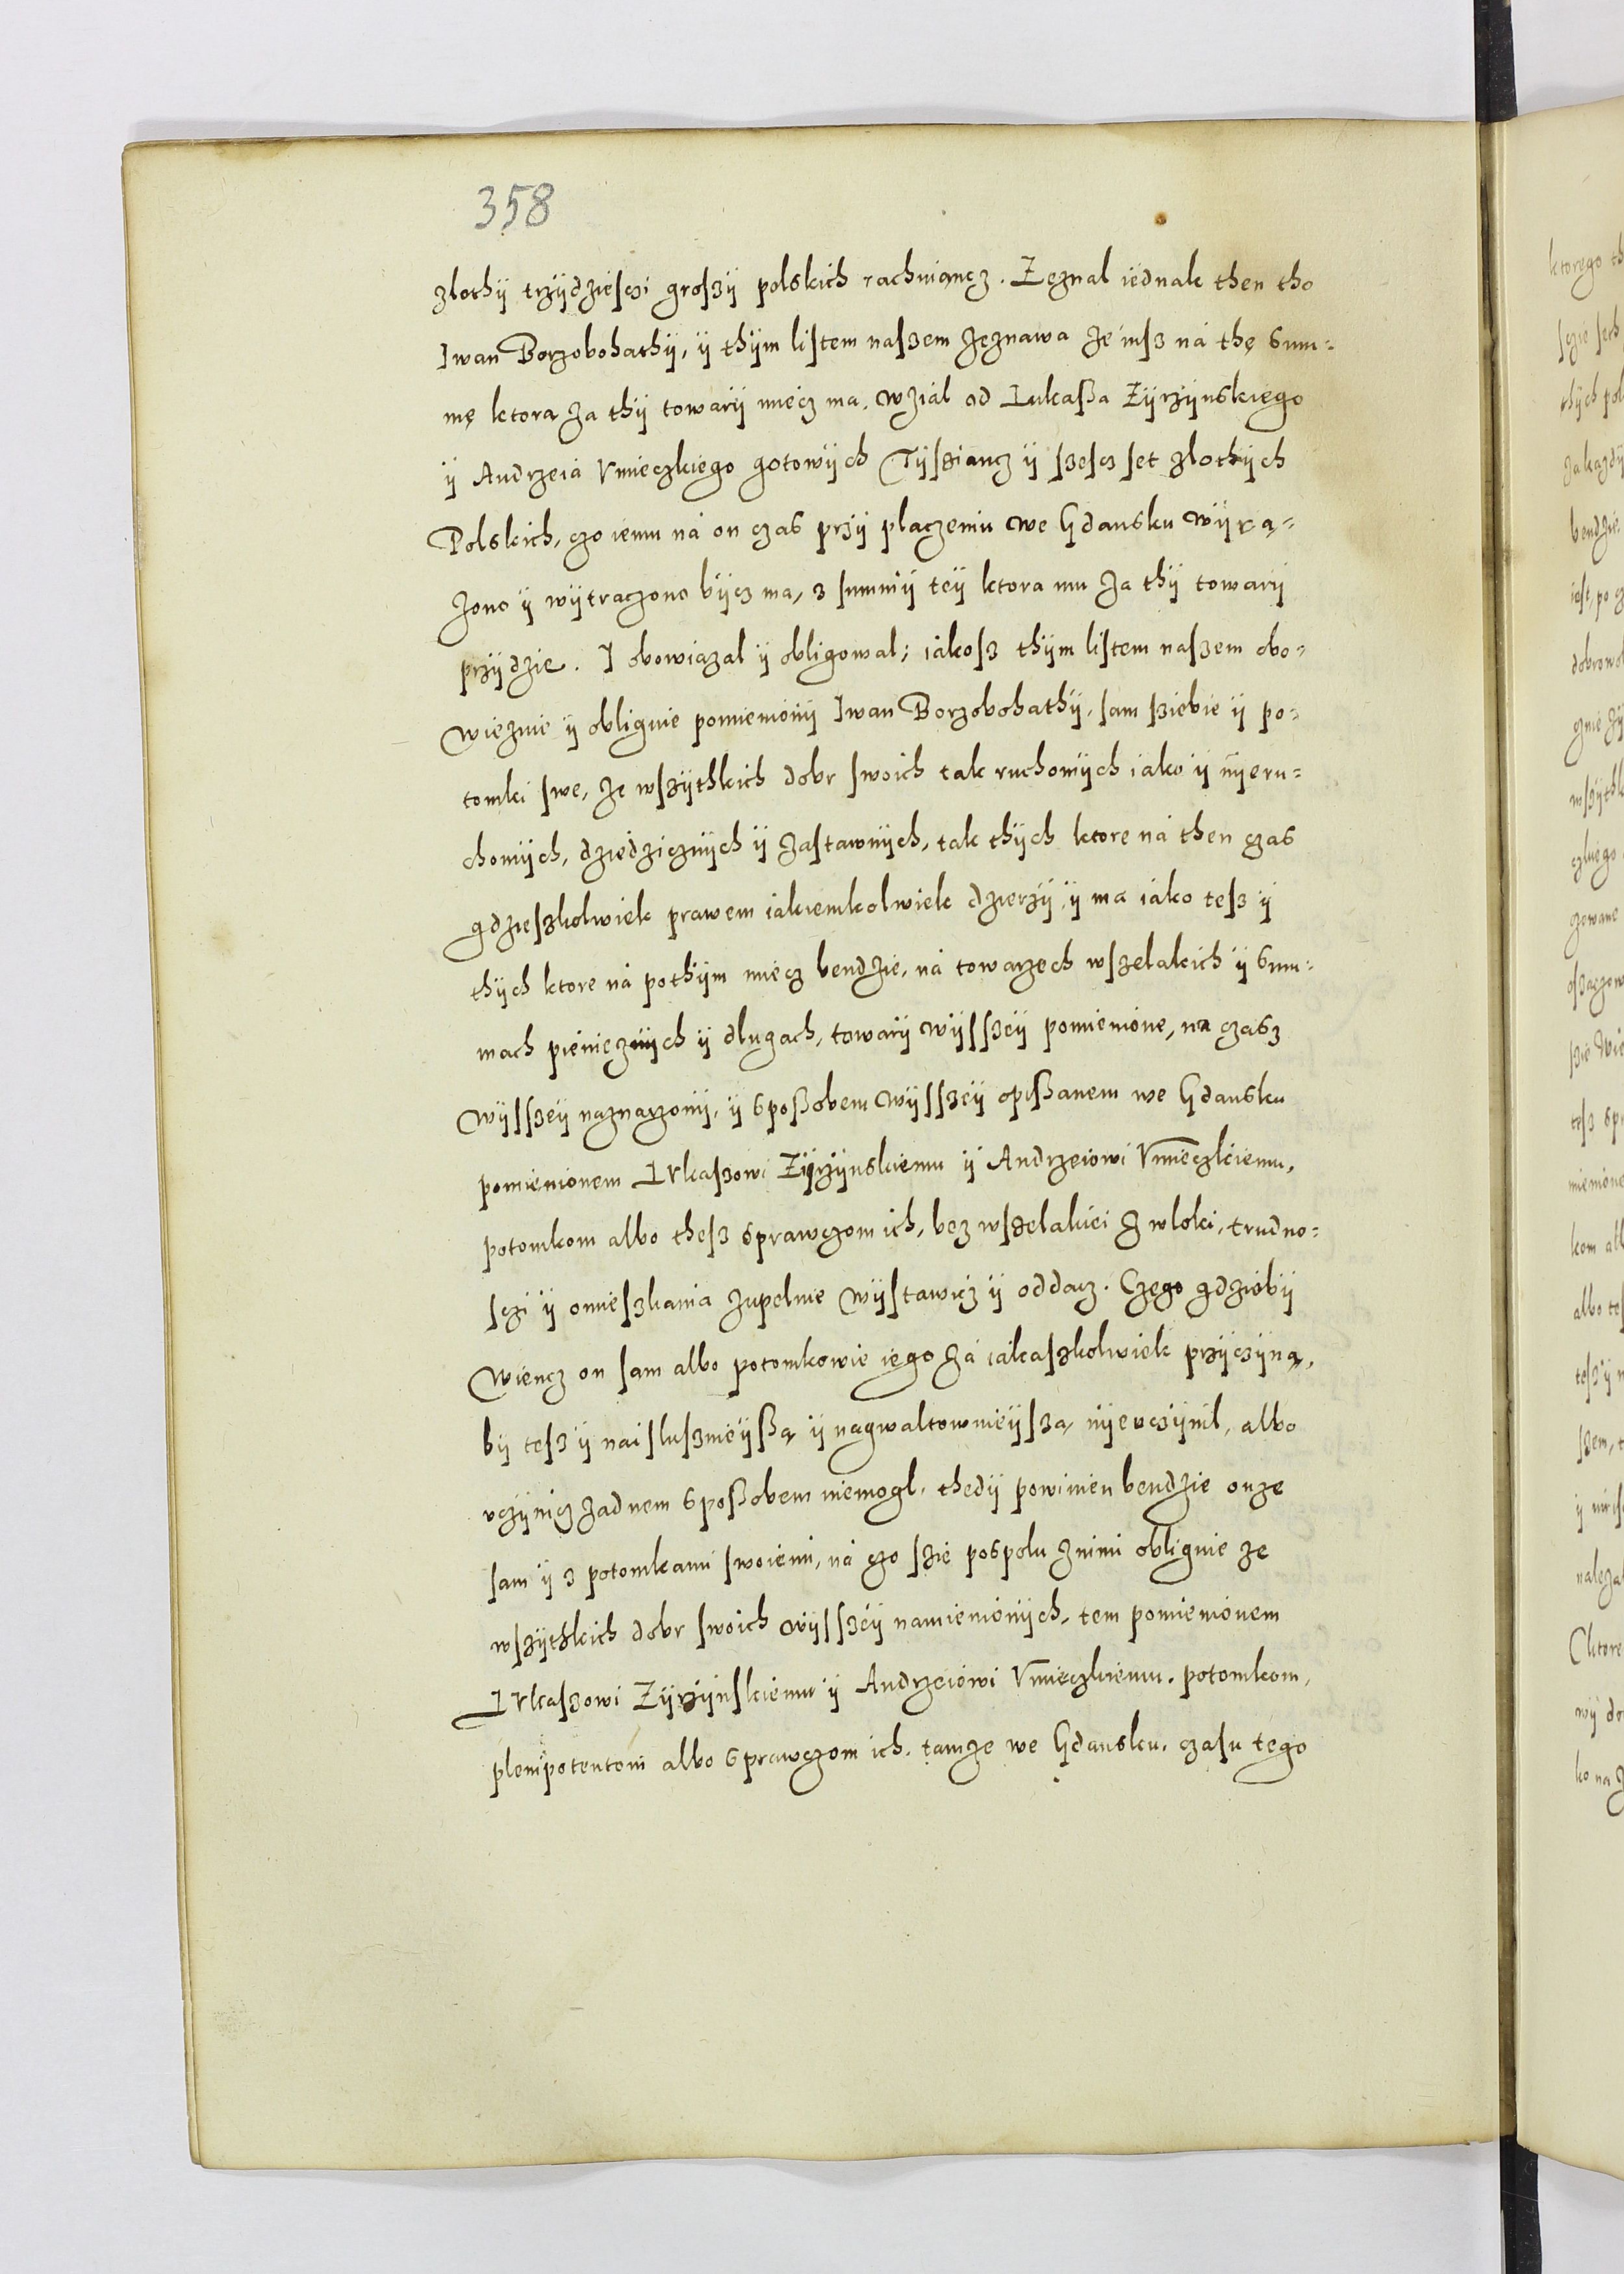 358
zlothÿ trzÿdzieſczi groſzÿ polskich rachuiąncz. Zeznal iednak then tho
Iwan Borzobohathÿ, ÿ thÿm liſtem naſzem zeznawa że iuſz ná thę sum=
mę ktora za thÿ towarÿ miecz ma, wziąl od Lukaſſa Zÿrzÿnskiego
ÿ Andrzeia Vnieczkiego gotowÿch Tÿſziancz ÿ ſzeſcz ſet zlothÿch
Polskich, czo iemu ná on czas przÿ placzeniu we Gdansku wÿrą=
zono ÿ wÿtraczono bÿcz ma, z summÿ teÿ ktora mu za thÿ towarÿ
przÿdzie. I obowiązal ÿ obligowal; iakoſz thÿm liſtem naſzem obo=
wiezuie ÿ obliguie pomienionÿ Iwan Borzobohathÿ, ſam ſziebie ÿ po=
tomki ſwe, ze wſzÿthkich dobr ſwoich tak ruchomÿch iako ÿ nÿeru=
chomÿch, dziedzicznÿch ÿ zaſtawnÿch, tak thÿch ktore ná then czas
gdzieſzkolwiek prawem iakiemkolwiek dzierzÿ, ÿ ma iáko teſz ÿ
thÿch ktore ná pothÿm miecz bendzie, ná towarzech wſzelakich ÿ sum=
mach pienięznÿch ÿ dlugach, towarÿ wÿſſzeÿ pomienione, na czasz
wÿſſzeÿ naznaczonÿ, ÿ spoſſobem wÿſſzeÿ opiſſanem we Gdansku
pomienionem LVkaſzowi Zÿrzÿnskiemu ÿ Andrzeiowi Vnieczkiemu,
potomkom albo theſz sprawczom ich, bez wſzelakiei zwloki, trudno=
ſczi ÿ omieſzkania zupelnie wÿſtawicz ÿ oddacz. Czego gdziebÿ
wiencz on ſam albo potomkowie iego za iakaſzkolwiek przÿczÿną,
bÿ teſz ÿ naiſluſznieÿſſą ÿ nagwaltownieÿſzą, nÿevczÿnil, albo
vczÿnicz zadnem spoſſobem niemogl, thedÿ powinien bendzie onze
ſam ÿ z potomkami ſwoiemi, ná czo ſzie pospolu znimi obliguie ze
wſzÿthkich dobr ſwoich wÿſſzeÿ namienionÿch, tem pomienionem
LVkaſzowi Zÿrzÿnſkiemu ÿ Andrzeiowi Vnieczkiemu, potomkom,
plenipotentom albo sprawczom ich, tamze we Gdansku, czaſu tego